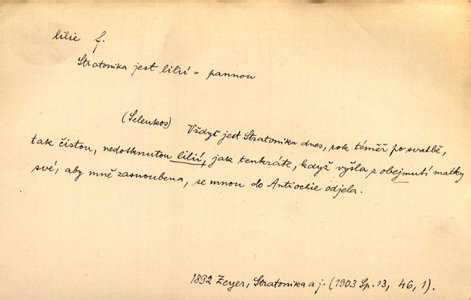 lilie f.
Stratonika jest lilií = pannou
(Seleukos) Vždyť jest Stratonika dnes, rok téměř po svatbě,
tak čistou, nedotknutou lilií, jak tenkráte, když vyšla z obejmutí matky
své, aby mně zasnoubena, se mnou do Antiochie odjela.
1892 Zeyer, Stratonika a j. (1903 Sp. 13, 46, 1).